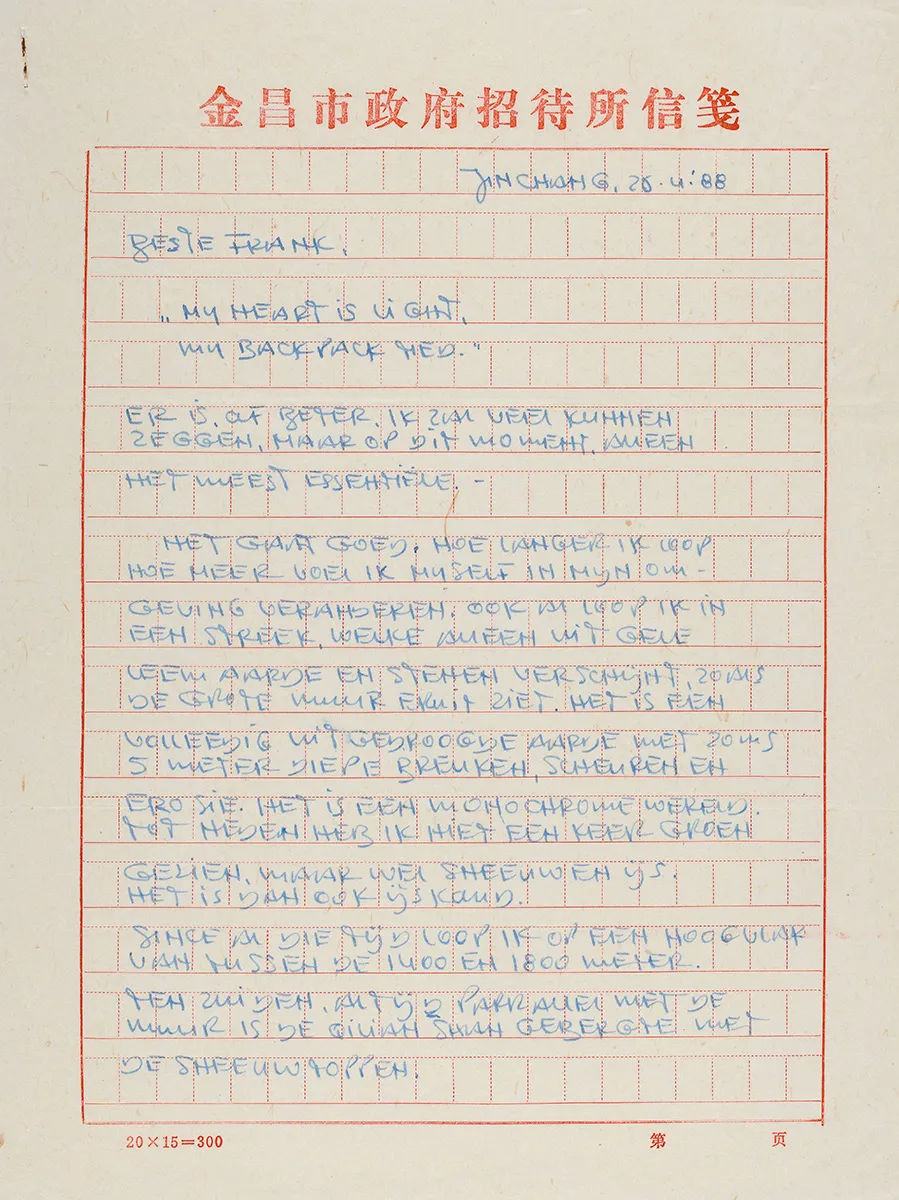 金昌市政府招待所信笺
JINCHANG, 28.4.'88
BESTE FRANK,
„MY HEART IS LIGHT,
MY BACKPACK TED."
ER IS, OF BETER, IK ZAL VEEL KUNNEN
ZEGGEN, MAAR OP DIT MOMENT, ALLEEN
HET MEEST ESSENTIËLE. –
HET GAAT GOED. HOE LANGER IK LOOP
HOE MEER VOEL IK MYSELF IN MIJN OM-
GEVING VERANDEREN. OOK AL LOOP IK IN
EEN STREEK, WELKE ALLEEN UIT GELE
LEEM AARDE EN STENEN VERSCHIJNT, ZOALS
DE GROTE MUUR ERUIT ZIET. HET IS EEN
VOLLEEDIG UITGEDROOGDE AARDE MET ZOALS
5 METER DIEPE BREUKEN, SCHEUREN EN
EROSIE. HET IS EEN MONOCHROME WERELD.
TOT HEDEN HEB IK NIET EEN KEER GROEN
GEZIEN, MAAR WEL SNEEUW EN IJS.
HET IS DAN OOK IJSKOUD.
SINCE AL DIE TIJD LOOP IK OP EEN HOOGVLAK
VAN TUSSEN DE 1400 EN 1800 METER.
TEN ZUIDEN, ALTIJD PARRALLEL MET DE
MUUR IS DE QILIAN SHAN GEBERGTE MET
DE SNEEUWTOPPEN.
20×15=300 第 页